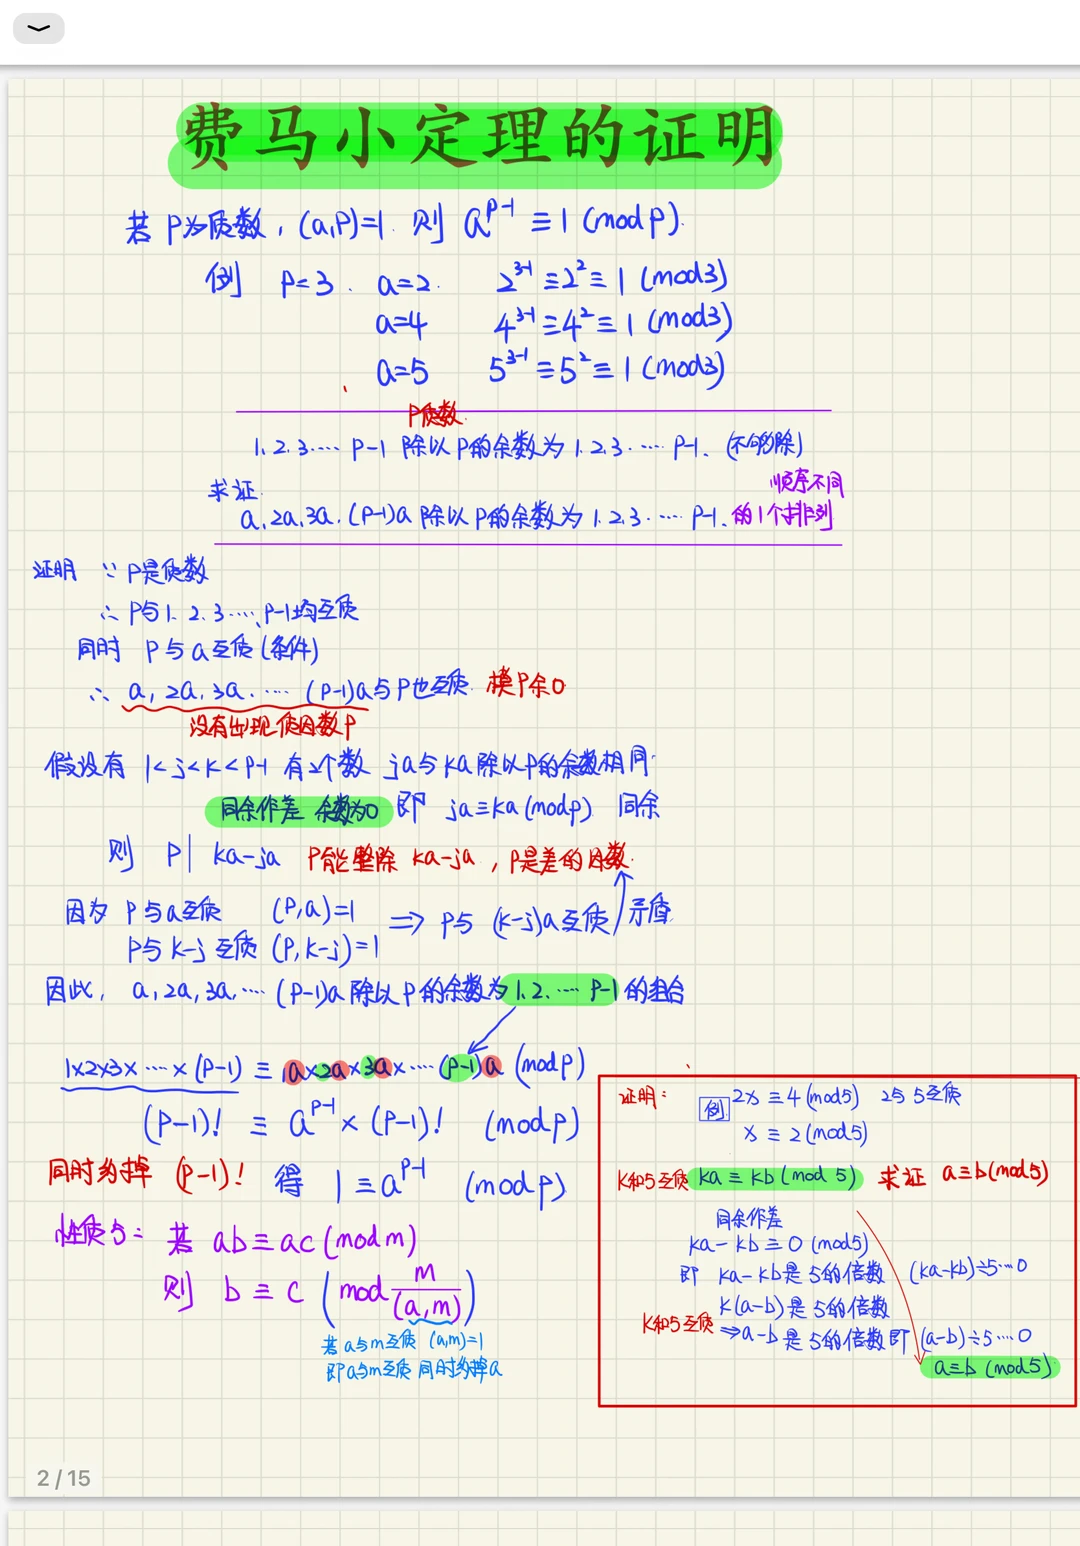 费马小定理的证明
若 P为质数, (a,P)=1. 则 a^{p-1} ≡ 1 (mod p).
例 P=3. a=2. 2^{3-1} ≡ 2^2 ≡ 1 (mod3)
a=4 4^{3-1} ≡ 4^2 ≡ 1 (mod3)
a=5 5^{3-1} ≡ 5^2 ≡ 1 (mod3)
P质数.
1. 2. 3. …. P-1 除以 P的余数为 1. 2. 3. …. P-1. (不够除)
求证. 顺序不同
a. 2a. 3a. (P-1)a 除以 P的余数为 1. 2. 3. …. P-1. 的1个排列
证明 ∵ P是质数
∴ P与 1. 2. 3 …. P-1均互质
同时 P与a互质(条件)
∴ a, 2a, 3a. …. (P-1)a与P也互质. 模P余0
没有出现质因数P
假设有 1<j<k<P-1 有2个数 ja与ka除以P的余数相同.
同余作差 余数为0 即 ja≡ka(mod p) 同余
则 P| ka-ja P能整除 ka-ja, P是差的因数.
因为 P与a互质 (P,a)=1 ⇒ P与 (k-j)a互质 矛盾
P与 k-j 互质 (P,k-j)=1
因此, a, 2a, 3a, …. (P-1)a 除以P的余数为 1. 2. …. P-1 的组合
1×2×3×…×(P-1) ≡ 1a×2a×3a×….(P-1)a (mod p)
(P-1)! ≡ a^{P-1} × (P-1)! (mod p)
同时约掉 (P-1)! 得 1 ≡ a^{P-1} (mod p)
性质5: 若 ab≡ac(mod m)
则 b ≡ c (mod \frac{m}{(a,m)})
若 a与m互质 (a,m)=1
即a与m互质 同时约掉a
证明: 例 2x ≡ 4 (mod5) 2与5互质
x ≡ 2 (mod5)
K和5互质 ka ≡ kb (mod 5) 求证 a≡b(mod5)
同余作差
ka-kb ≡ 0 (mod5)
即 ka-kb是5的倍数 (ka-kb)÷5…0
k(a-b)是5的倍数
K和5互质 ⇒ a-b是5的倍数即 (a-b)÷5…0
a≡b (mod5)
2 / 15